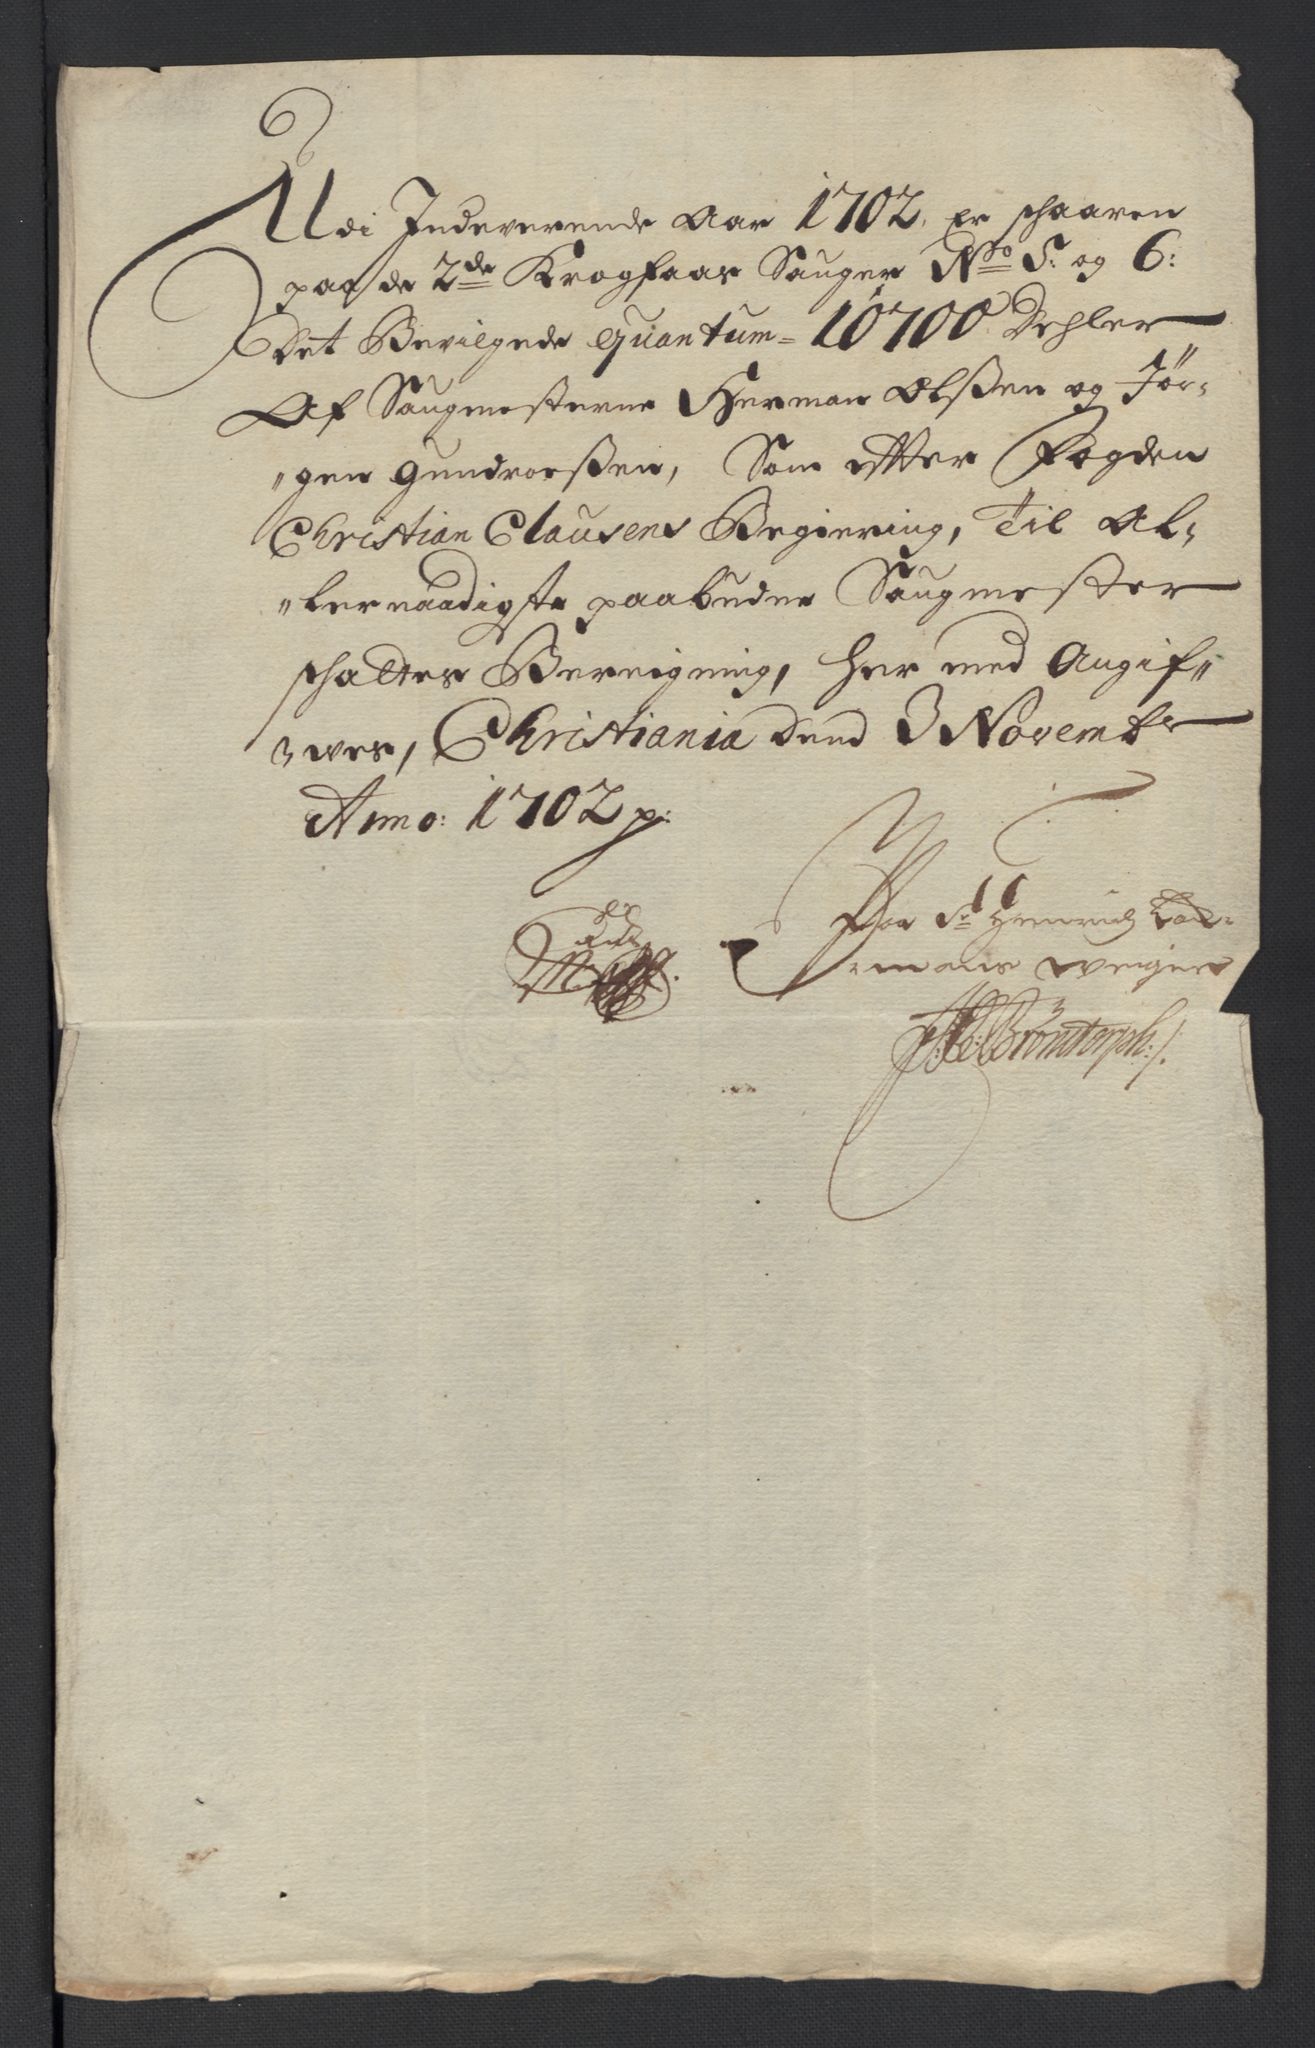 Udi Indeverende Aar 1702, er schaaren
paa de 2de Krogfaas Sauger No 5: og 6:
Det Bevilgede quantum = 10700 Dehler
Af Saugmesterne Herman Olßen og Jör-
"gen Gundroeßen, Som effter Fogden
Christian Clausens Begiering, Til Al-
"lernaadigste paabudne Saugmester
schattes Beregning, her med Angif"
"ves, Christiania Dend 3 Novembr
Anno: 1702 p:
Paa Sr Henrich
mans vegne
Bröndorph:/.